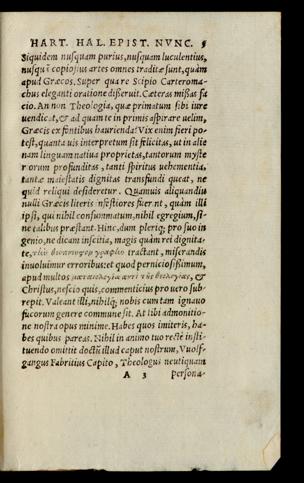 HART. HAL. EPIST. NVNC. 5
Siquidem nusquam purius, nusquam luculentius,
nusquā copiosius artes omnes traditæ sunt, quàm
apud Græcos. Super qua re Scipio Carteroma-
chus eleganti oratione disseruit. Cæteras missas fa
cio. An non Theologia, quæ primatum sibi iure
uendicat, & ad quam te in primis aspirare uelim,
Græcis ex fontibus haurienda? Vix enim fieri po-
test, quanta uis interpretum sit felicitas, ut in alie
nam linguam natiua proprietas, tantorum myste
riorum profunditas, tanti spiritus uehementia,
tantæ maiestatis dignitas transfundi queat, ne
quid reliqui desideretur. Quamuis aliquandiu
nulli Græcis literis infestiores fuerunt, quàm illi
ipsi, qui nihil consummatum, nihil egregium, si-
ne talibus præstant. Hinc, dum pleriq; pro suo in
genio, ne dicam inscitia, magis quàm rei dignita-
te, tractant, miserandis
inuoluimur erroribus: et quod perniciosissimum,
apud multos ματαιολογία ἀντὶ τῆς θεολογίας, &
Christus, nescio quis, commenticius pro uero sub-
repit. Valeant illi, nihilq; nobis cum tam ignauo
fucorum genere commune sit. At libi admonitio-
ne nostra opus minime. Habes quos imiteris, ha-
bes quibus pareas. Nihil in animo tuo rectè insti-
tuendo omittit doctū illud caput nostrum, Vuolf-
gangus Fabritius Capito, Theologus neutiquam
A 3 persona-